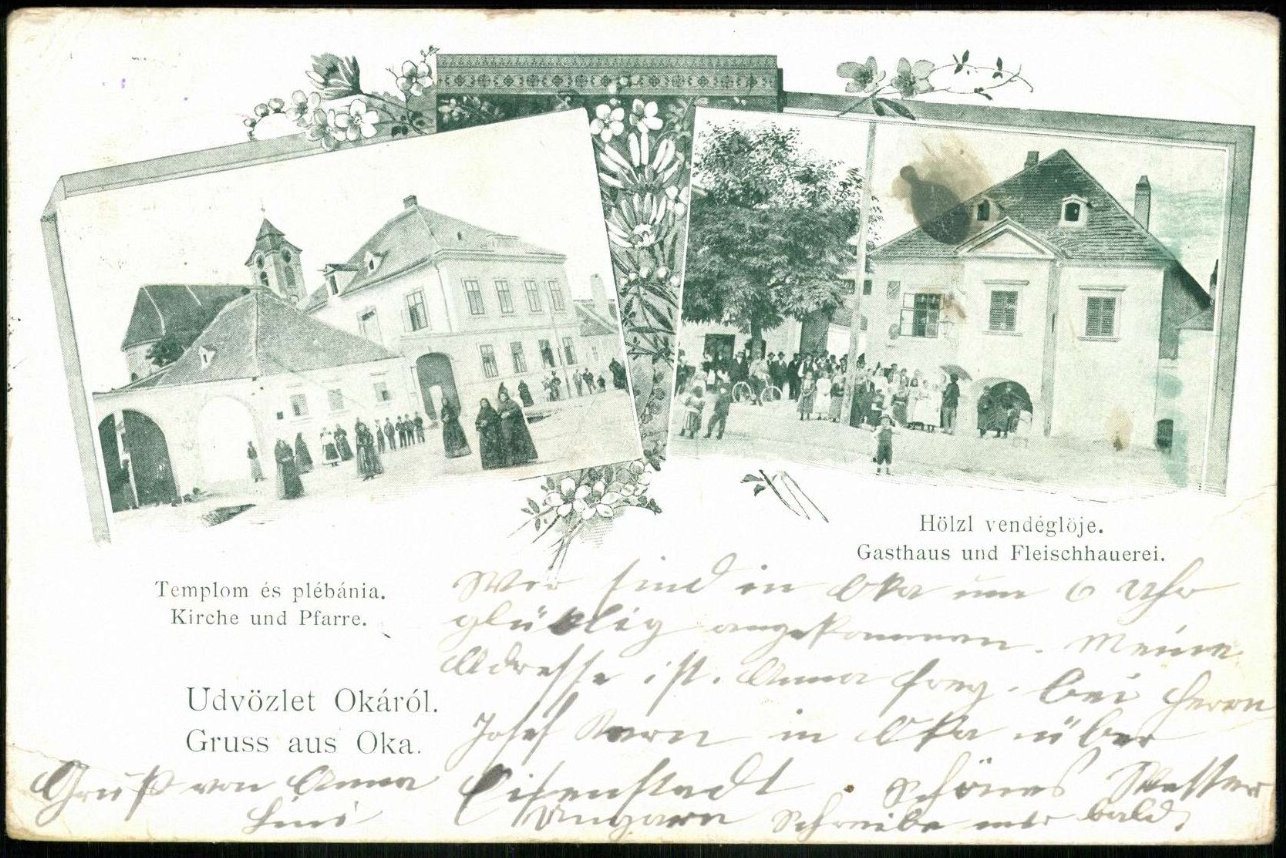 Hölzl vendéglöje.
Gasthaus und Fleischhauerei.
Templom és plébánia.
Kirche und Pfarre.
Udvözlet Okáról.
Gruss aus Oka.
Wir sind in Oka um 6 Uhr
glücklig angekommen. Meine
Adresse ist. Anna Frey. bei Herrn
Josef Kern in Oka über
Eisenstadt. Schönes Wetter
Ungarn Schreibe mir bald.
Gruß von Anna